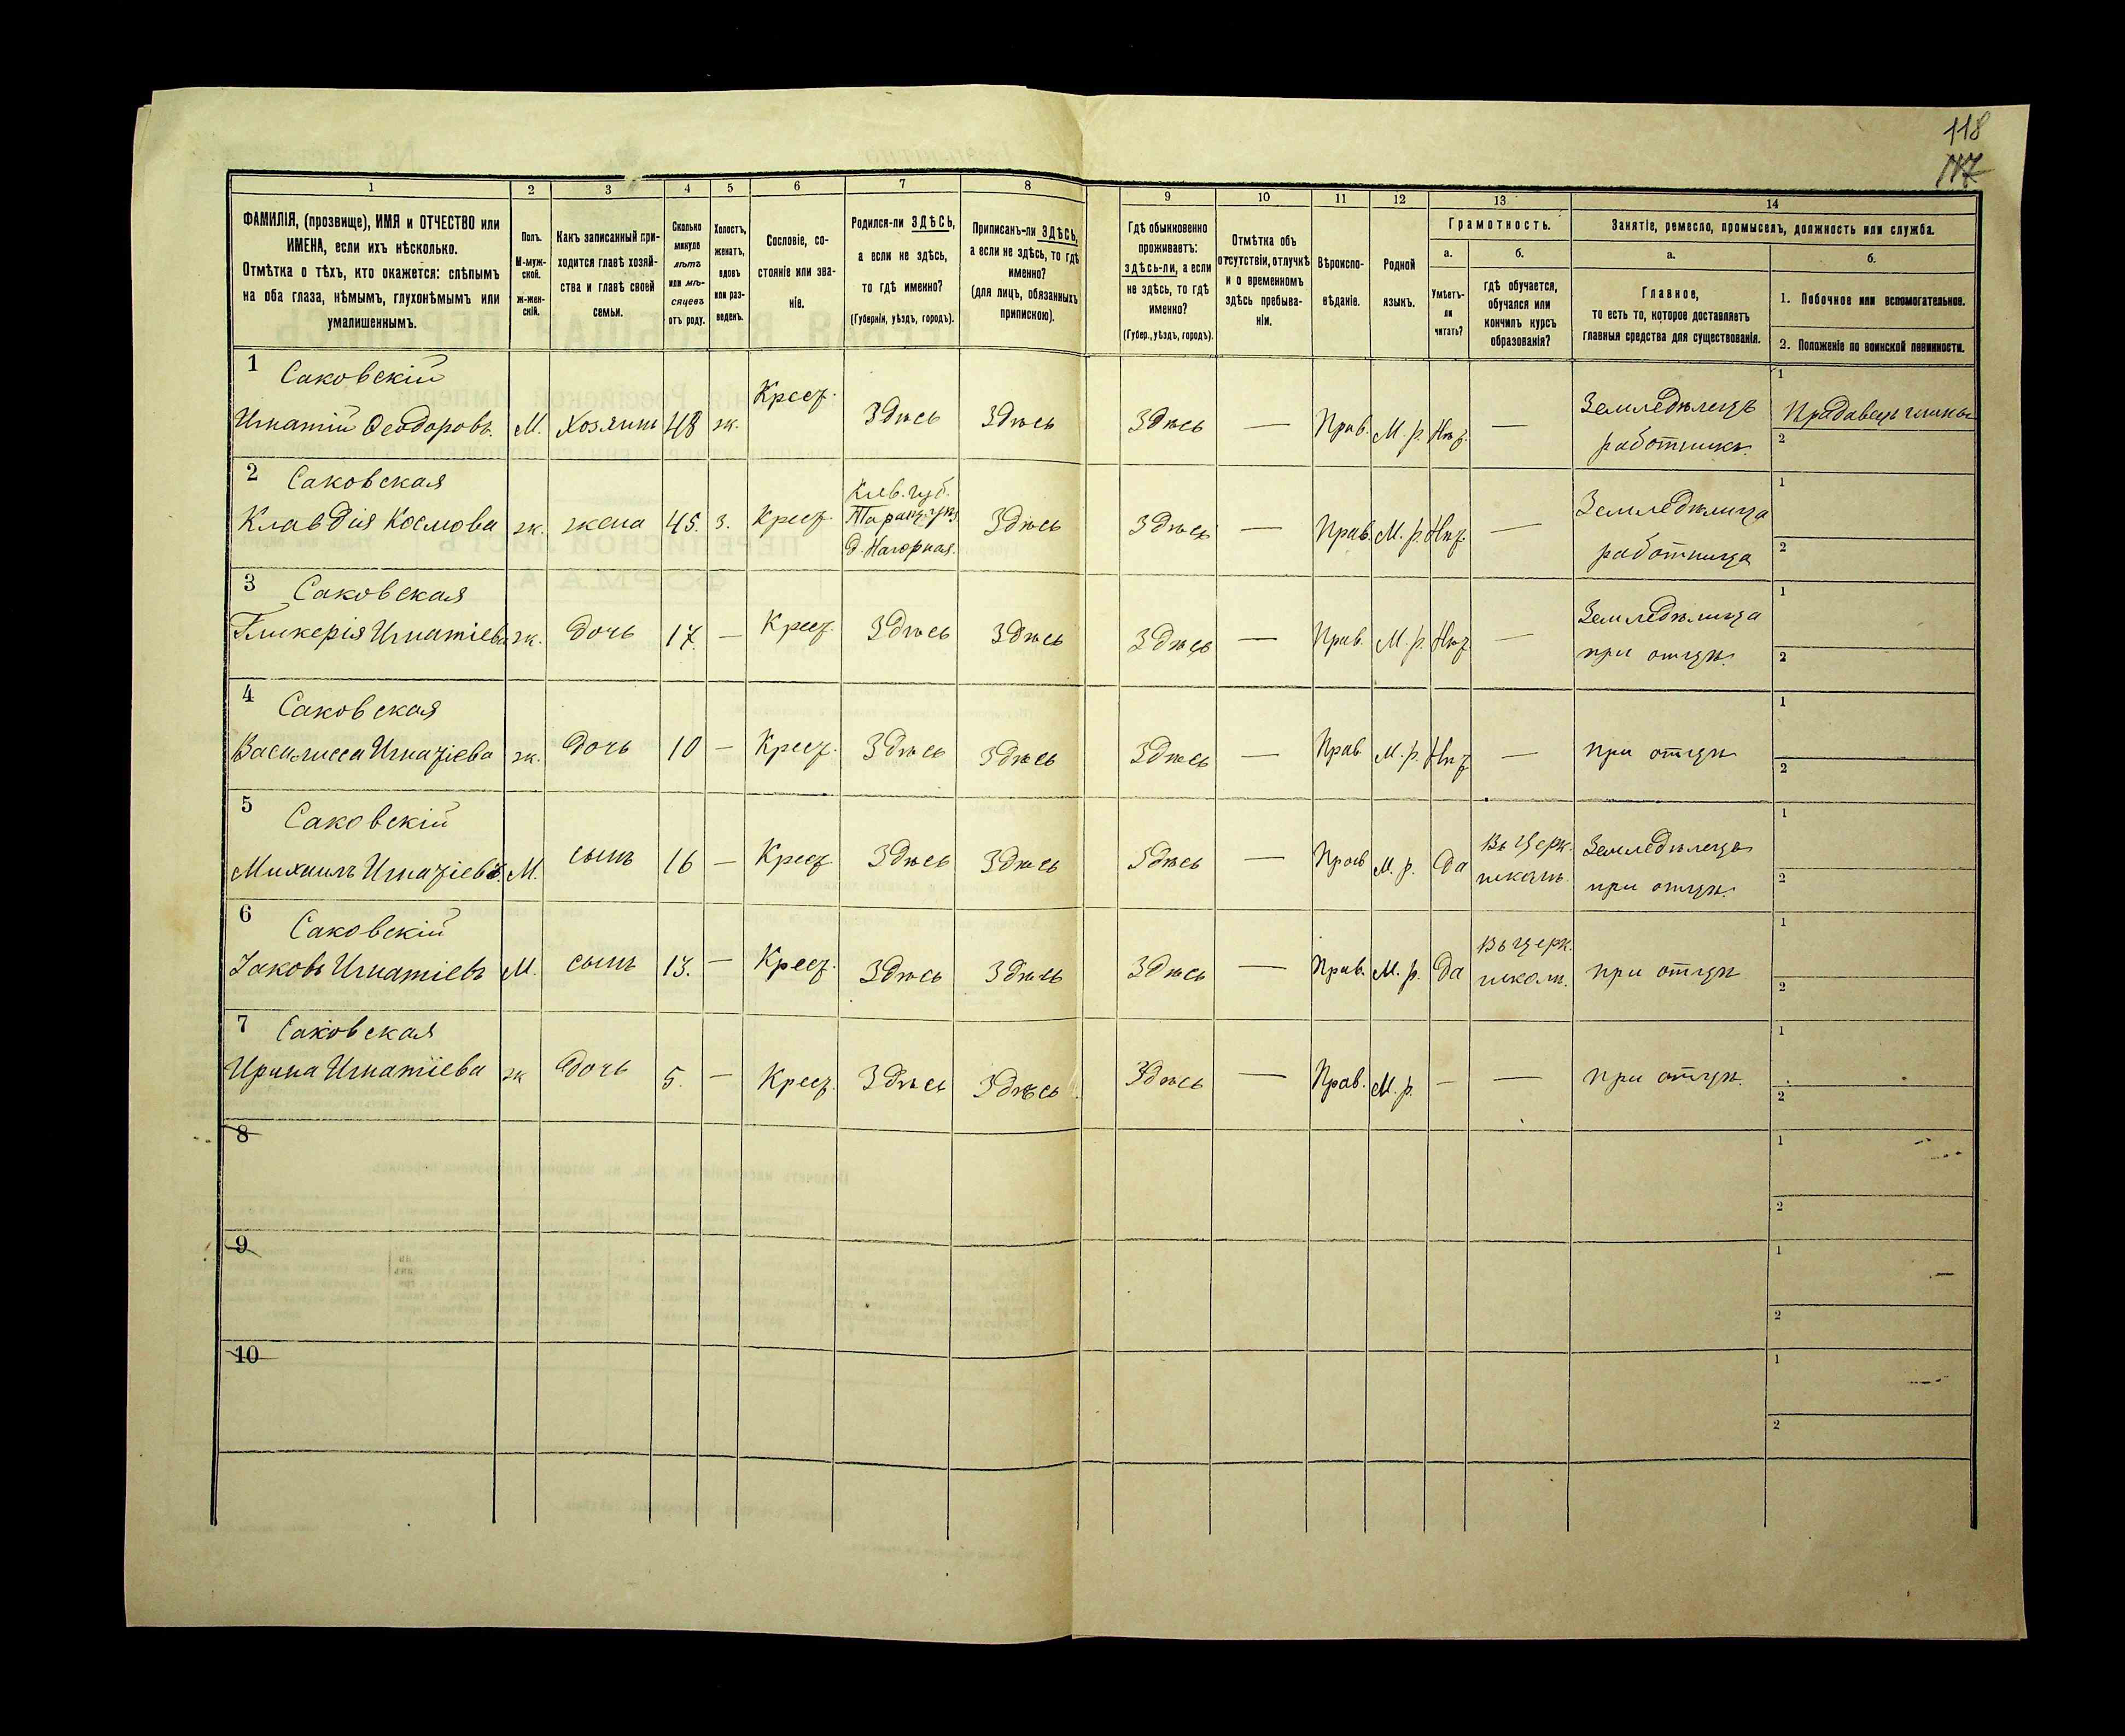 118
117
1
2
3
4
5
6
7
8
9
10
11
12
13
14
ФАМИЛІЯ, (прозвище), ИМЯ и ОТЧЕСТВО или
ИМЕНА, если ихъ нѣсколько.
Отмѣтка о тѣхъ, кто окажется: слѣпымъ
на оба глаза, нѣмымъ, глухонѣмымъ или
умалишеннымъ.
Полъ.
М-муж-
ской.
ж-жен-
скій.
Какъ записанный при-
ходится главѣ хозяй-
ства и главѣ своей
семьи.
Сколько
минуло
лѣтъ
или мѣ-
сяцевъ
отъ роду.
Холостъ,
женатъ,
вдовъ
или раз-
веденъ.
Сословіе, со-
стояніе или зва-
ніе.
Родился-ли ЗДѢСЬ,
а если не здѣсь,
то гдѣ именно?
(Губернія, уѣздъ, городъ).
Приписанъ-ли ЗДѢСЬ,
а если не здѣсь, то гдѣ
именно?
(для лицъ, обязанныхъ
припискою).
Гдѣ обыкновенно
проживаетъ:
здѣсь-ли, а если
не здѣсь, то гдѣ
именно?
(Губер., уѣздъ, городъ).
Отмѣтка объ
отсутствіи, отлучкѣ
и о временномъ
здѣсь пребыва-
ніи.
Вѣроиспо-
вѣданіе.
Родной
языкъ.
Грамотность.
а.
Умѣетъ-
ли
читать?
б.
гдѣ обучается,
обучался или
кончилъ курсъ
образованія?
Занятіе, ремесло, промыселъ, должность или служба.
а.
Главное,
то есть то, которое доставляетъ
главныя средства для существованія.
б.
1. Побочное или вспомогательное.
2. Положеніе по воинской повинности.
1 Саковскій
Игнатій Ѳеодоровъ.
М.
Хозяинъ
48
ж.
Крест.
Здѣсь
Здѣсь
Здѣсь
—
Прав.
М. р.
Нѣт.
—
Земледѣлецъ
работникъ.
1
2
2 Саковская
Клавдія Космова
ж.
жена
45.
з.
Крест.
Кіев. губ.
д. Нагорная.
Здѣсь
Здѣсь
—
Прав.
М. р.
Нѣт.
—
Земледѣлица
работница
1
2
3 Саковская
Гликерія Игнатіева
ж.
дочь
17.
—
Крест.
Здѣсь
Здѣсь
Здѣсь
—
Прав.
М. р.
Нѣт
—
Земледѣлица
при отцѣ.
1
2
4 Саковская
Василисса Игнатіева
ж.
дочь
10
—
Крест.
Здѣсь
Здѣсь
Здѣсь
—
Прав
М. р.
Нѣт
—
при отцѣ
1
2
5 Саковскій
Михаилъ Игнатіевъ.
М.
сынъ
16
—
Крест.
Здѣсь
Здѣсь
Здѣсь
—
Прав
М. р.
да
Въ церк.
школѣ.
Земледѣлецъ
при отцѣ.
1
2
6 Саковскій
Іаковъ Игнатіевъ
М.
сынъ
13.
—
Крест.
Здѣсь
Здѣсь
Здѣсь
—
Прав.
М. р.
да
Въ церк.
школѣ.
при отцѣ
1
2
7 Саковская
Ирина Игнатіева
ж
дочь
5.
—
Крест.
Здѣсь
Здѣсь
Здѣсь
—
Прав.
М. р.
—
—
при отцѣ.
1
2
8
1
2
9
1
2
10
1
2